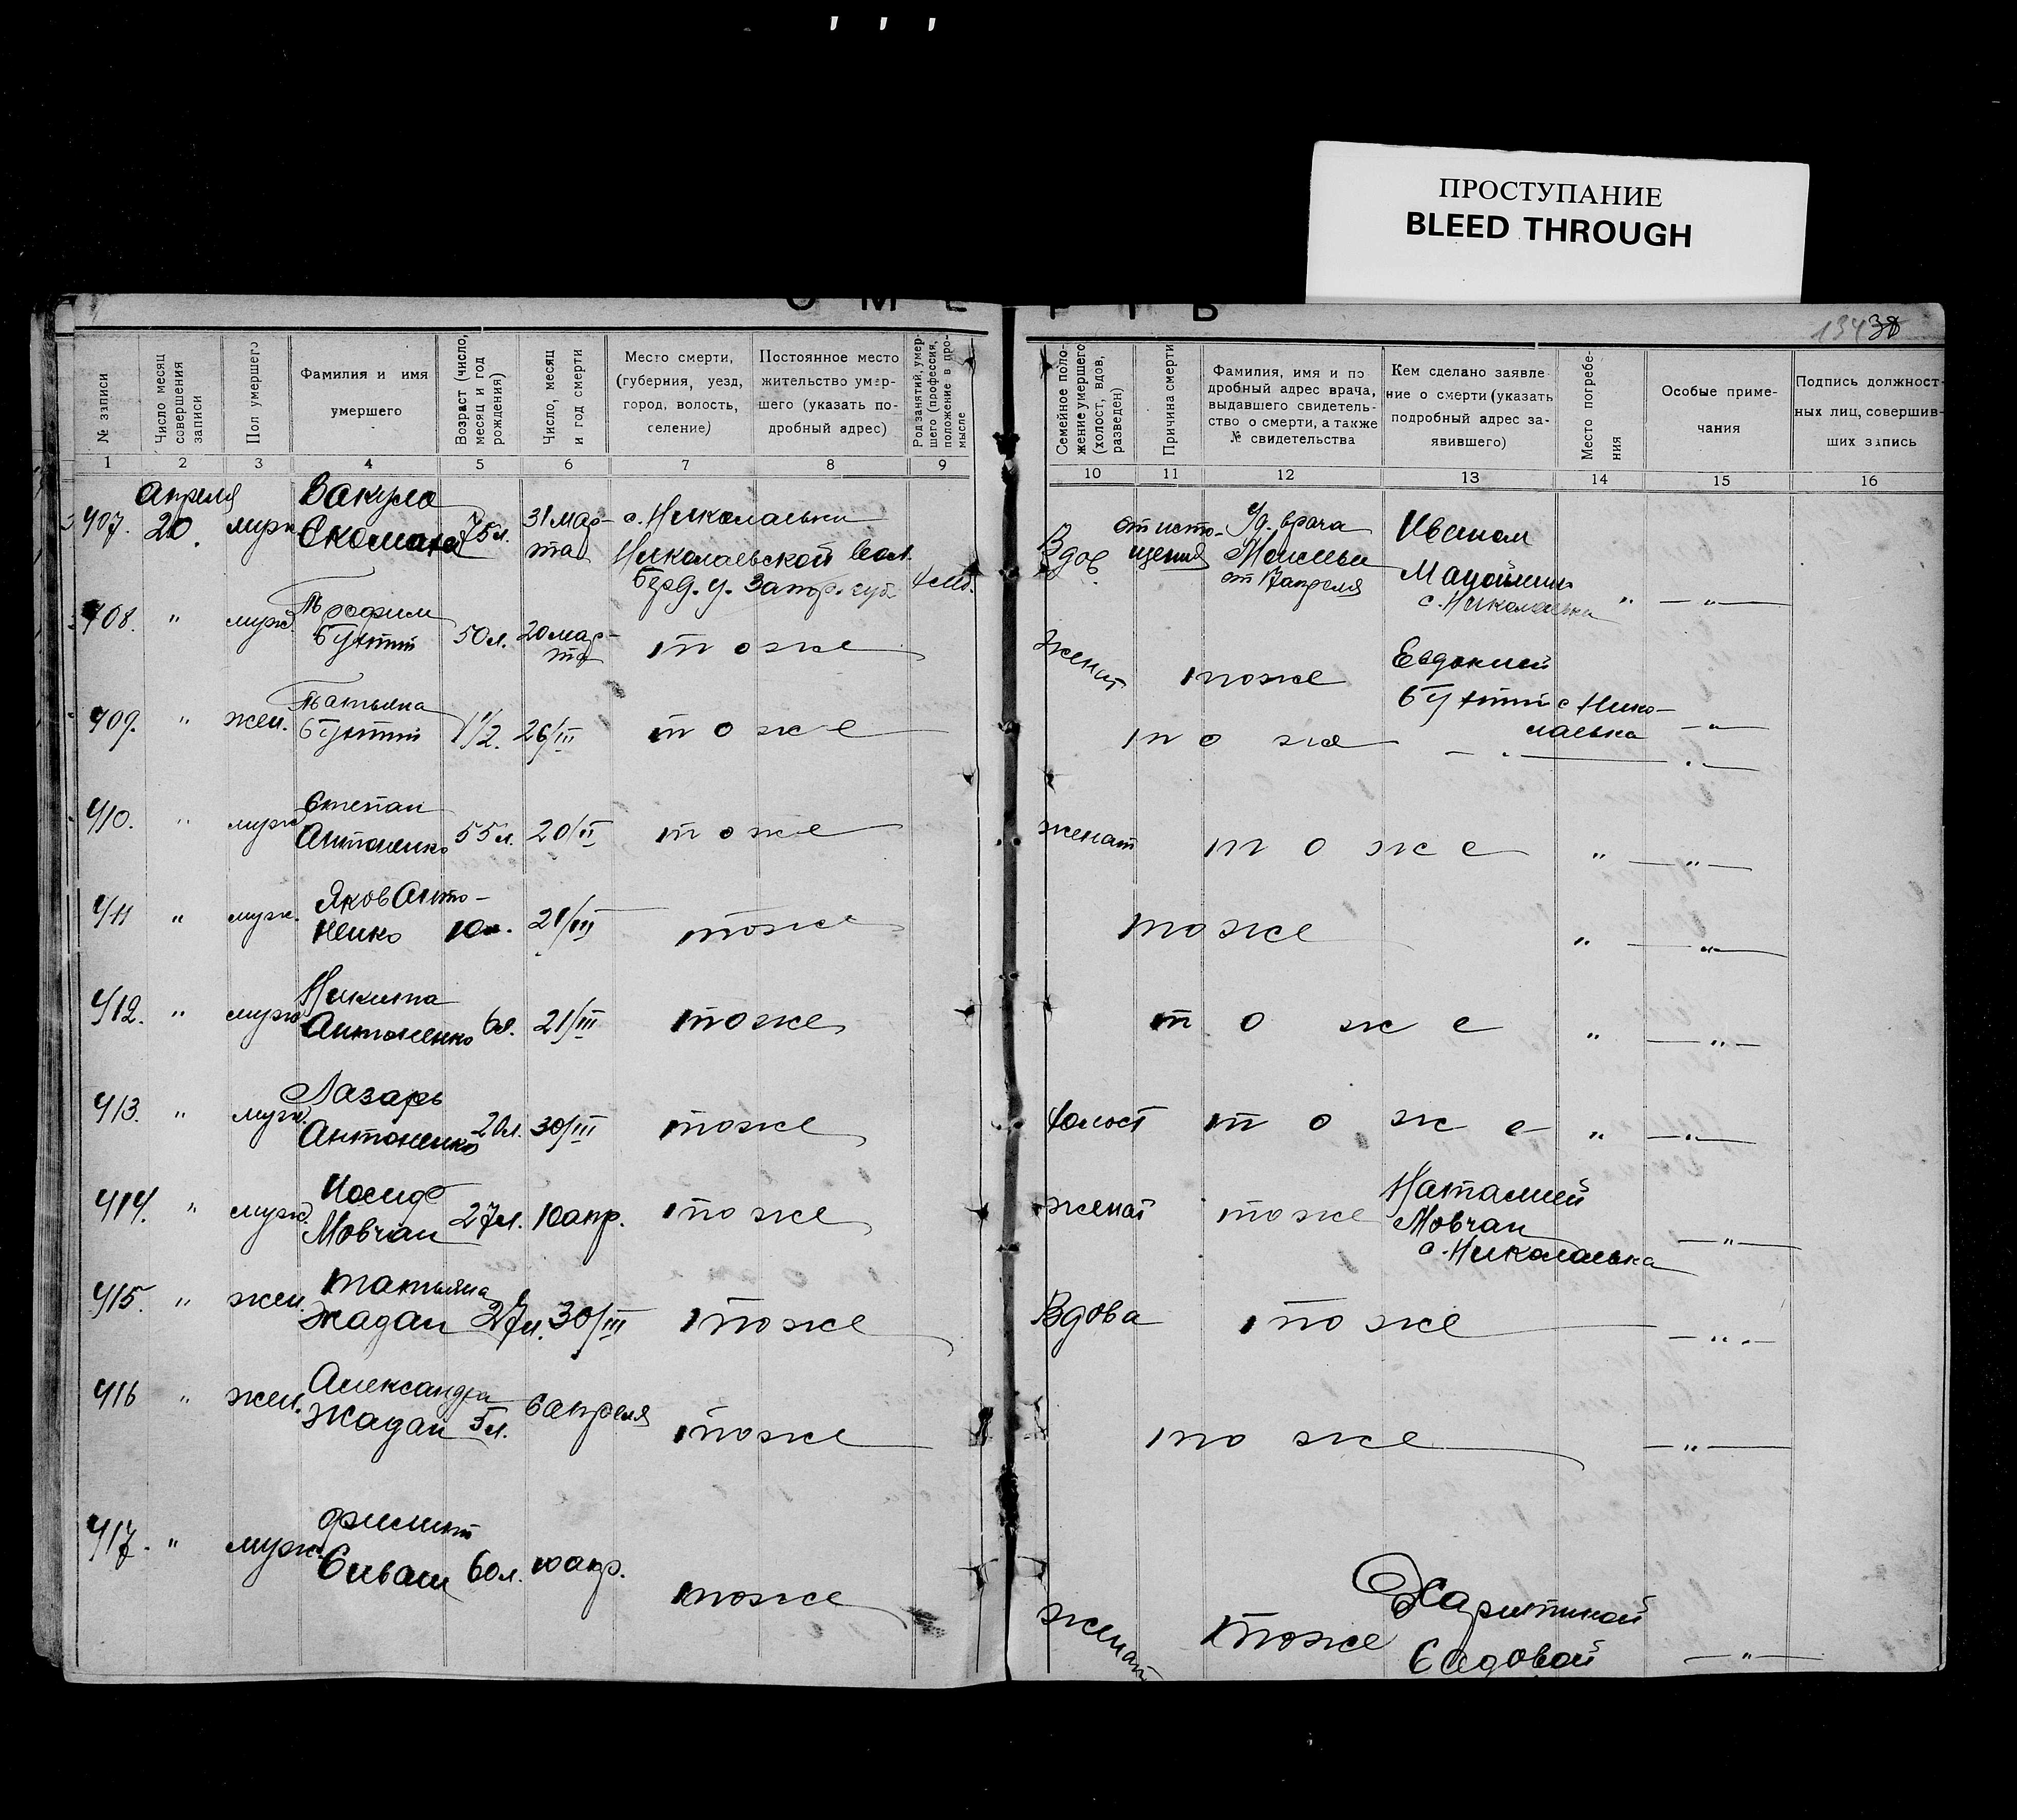 ПРОСТУПАНИЕ
BLEED THROUGH
134 38
№ записи
Число месяц совершения записи
Пол умершего
Фамилия и имя умершего
Возраст (число, месяц и год рождения)
Число, месяц и год смерти
Место смерти, (губерния, уезд, город, волость, селение)
Постоянное место жительство умершего (указать подробный адрес)
Род занятий, умершего (профессия, положение в промысле
Семейное положение умершего (холост, вдов, разведен)
Причина смерти
Фамилия, имя и подробный адрес врача, выдавшего свидетельство о смерти, а также № свидетельства
Кем сделано заявление о смерти (указать подробный адрес заявившего)
Место погребения
Особые примечания
Подпись должностных лиц, совершивших запись
1 2 3 4 5 6 7 8 9 10 11 12 13 14 15 16
Апреля
407. 20. муж. Вакула 75л. 31 марта с. Николаевки Николаевской вол. Берд. у. Запор. губ. Вдов. от истощения Уд. врача от 17 апреля Иваном с. Николаевка " — " —
408. " муж. Трофим 50л. 20 марта тоже женат тоже Евдокией с Николаевка — " —
409. " жен. Татьяна 1 1/2. 26/III тоже тоже — " —
410. " муж. Степан Антоненко 55л. 20/II тоже женат тоже " — " —
411 " муж. Яков Антоненко 10л. 21/III тоже тоже " — " —
412. " муж. Никита Антоненко 6л. 21/III тоже тоже " — " —
413. " муж. Лазарь Антоненко 20л. 30/III тоже холост тоже " — " —
414. " муж. Иосиф Мовчан 27л. 10 апр. тоже женат тоже Наталией Мовчан с. Николаевка — " —
415. " жен. Татьяна Жадан 27л. 30/III тоже Вдова тоже — " —
416 " жен. Александра Жадан 5л. 6 апреля тоже тоже — " —
417. " муж. Филипп Сиваш 60л. 10 апр. тоже женат тоже Харитиной — " —